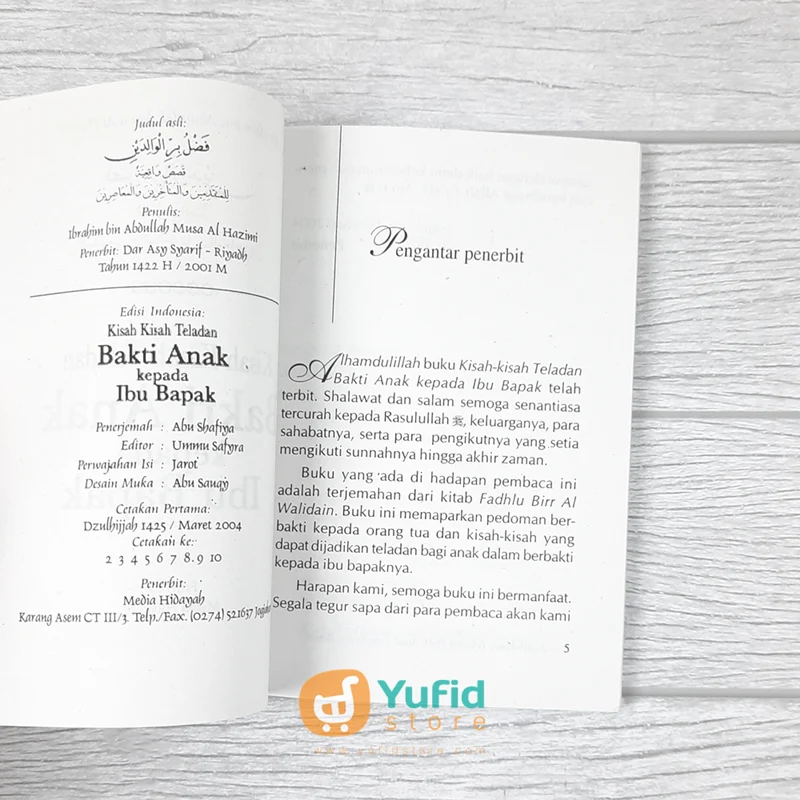 Judul asli:
فَضْلُ بِرِّ الْوَالِدَيْنِ
قَصَصٌ وَاقِعِيَّةٌ
لِلْمُتَقَدِّمِيْنَ وَالْمُتَأَخِّرِيْنَ وَالْمُعَاصِرِيْنَ
Penulis:
Ibrahim bin Abdullah Musa Al Hazimi
Penerbit: Dar Asy Syarif - Riyadh
Tahun 1422 H / 2001 M
Edisi Indonesia:
Kisah Kisah Teladan
Bakti Anak
kepada
Ibu Bapak
Penerjemah : Abu Shafiya
Editor : Ummu Safyra
Perwajahan Isi : Jarot
Desain Muka : Abu Sauqy
Cetakan Pertama:
Dzulhijjah 1425 / Maret 2004
Cetakan ke:
2 3 4 5 6 7 8 9 10
Penerbit:
Media Hidayah
Karang Asem CT III/3. Telp./Fax. (0274) 521637
Pengantar penerbit
Alhamdulillah buku Kisah-kisah Teladan
Bakti Anak kepada Ibu Bapak telah
terbit. Shalawat dan salam semoga senantiasa
tercurah kepada Rasulullah ﷺ, keluarganya, para
sahabatnya, serta para pengikutnya yang setia
mengikuti sunnahnya hingga akhir zaman.
Buku yang ada di hadapan pembaca ini
adalah terjemahan dari kitab Fadhlu Birr Al
Walidain. Buku ini memaparkan pedoman ber-
bakti kepada orang tua dan kisah-kisah yang
dapat dijadikan teladan bagi anak dalam berbakti
kepada ibu bapaknya.
Harapan kami, semoga buku ini bermanfaat.
Segala tegur sapa dari para pembaca akan kami
5
Yufid
store
www.yufidstore.com